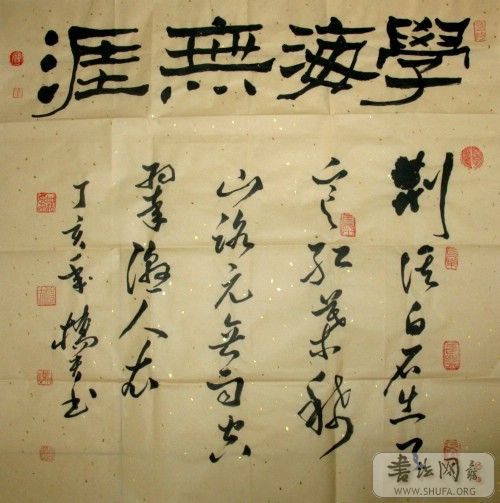 學海無涯
荆溪白石出天
寒紅葉稀
山路元无雨空
翠濕人衣
丁亥年書
書法网
WWW.SHUFA.ORG